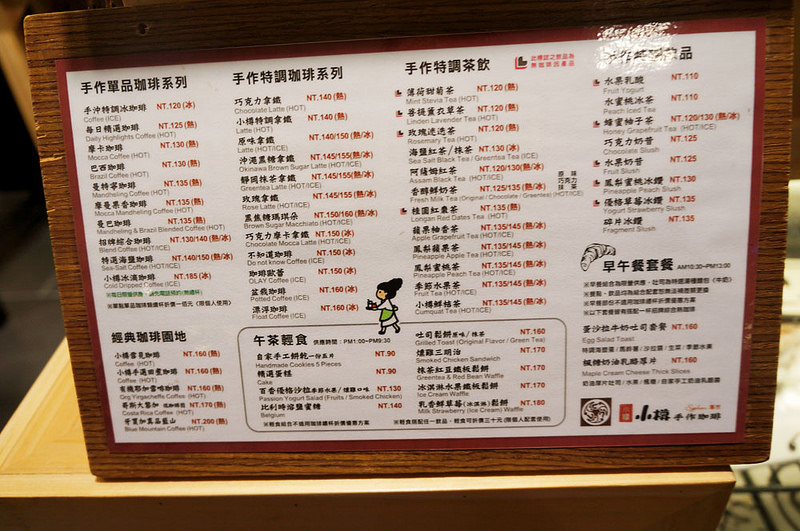 手作單品咖啡系列
手沖特調冰咖啡 NT.120 (冰)
Coffee (ICE)
每日精選咖啡 NT.125 (熱)
Daily Highlights Coffee (HOT)
摩卡咖啡 NT.130 (熱)
Mocca Coffee (HOT)
巴西咖啡 NT.130 (熱)
Brazil Coffee (HOT)
曼特寧咖啡 NT.135 (熱)
Mandheling Coffee (HOT)
摩曼果香咖啡 NT.135 (熱)
Mocca Mandheling Coffee (HOT)
曼巴咖啡 NT.135 (熱)
Mandheling & Brazil Blended Coffee (HOT)
招牌綜合咖啡 NT.130/140 (熱/冰)
Blend Coffee (HOT/ICE)
特選海鹽咖啡 NT.140/150 (熱/冰)
Sea-Salt Coffee (HOT/ICE)
小樽冰滴咖啡 NT.185 (冰)
Cold Dripped Coffee (ICE)
經典咖啡園地
NT.160 (熱)
小樽手選田園咖啡 NT.160 (熱)
有機耶加雪啡咖啡 NT.160 (熱)
Org Yirgacheffe Coffee (HOT)
哥斯大黎加 NT.170 (熱)
Costa Rica Coffee (HOT)
牙買加真品藍山 NT.200 (熱)
Blue Mountain Coffee (HOT)
手作特調咖啡系列
巧克力拿鐵 NT.140 (熱)
Chocolate Latte (HOT)
小樽特調拿鐵 NT.140 (熱)
Latte (HOT)
原味拿鐵 NT.140/150 (熱/冰)
Latte (HOT/ICE)
沖繩黑糖拿鐵 NT.145/155 (熱/冰)
Okinawa Brown Sugar Latte (HOT/ICE)
靜岡抹茶拿鐵 NT.145/155 (熱/冰)
Greentea Latte (HOT/ICE)
玫瑰拿鐵 NT.145/155 (熱/冰)
Rose Latte (HOT/ICE)
黑焦糖瑪琪朵 NT.150/160 (熱/冰)
Brown Sugar Macchiato (HOT/ICE)
巧克力摩卡拿鐵 NT.150 (冰)
Chocolate Mocca Latte (HOT)
不知道咖啡 NT.150 (冰)
Do not know Coffee (ICE)
咖啡歐蕾 NT.150 (冰)
OLAY Coffee (ICE)
盆栽咖啡 NT.160 (冰)
Potted Coffee (ICE)
漂浮咖啡 NT.160 (冰)
Float Coffee (ICE)
午茶輕食 供應時間：PM1:00~PM9:30
自家手工餅乾一份五片 NT.90
Handmade Cookies 5 Pieces
精選蛋糕 NT.90
Cake
百香優格沙拉 季節水果 / 燻雞口味 NT.130
Passion Yogurt Salad (Fruits / Smoked Chicken)
比利時溶鹽蜜糖 NT.140
Belgium
吐司鬆餅 原味 / 抹茶 NT.160
Grilled Toast (Original Flavor / Green Tea)
燻雞三明治 NT.170
Smoked Chicken Sandwich
抹茶紅豆鐵板鬆餅 NT.170
Greentea & Red Bean Waffle
冰淇淋水果鐵板鬆餅 NT.170
Ice Cream Waffle
乳香鮮草莓(冰淇淋)鬆餅 NT.180
Milk Strawberry (Ice Cream) Waffle
手作特調茶飲
此標誌之飲品為無咖啡因產品
薄荷甜菊茶 NT.120 (熱)
Mint Stevia Tea (HOT)
菩提薰衣草茶 NT.120 (熱)
Linden Lavender Tea (HOT)
玫瑰迷迭茶 NT.120 (熱)
Rosemary Tea (HOT)
海鹽紅茶 / 抹茶 NT.130 (冰)
Sea Salt Black Tea / Greentea Tea (ICE)
阿薩姆紅茶 NT.120/130 (熱/冰)
Assam Black Tea (HOT/ICE)
香醇鮮奶茶 NT.125/135 (熱/冰)
Fresh Milk Tea (Origine / Chocolate / Greentea) (HOT/ICE)
原味
巧克力
抹茶
桂圓紅棗茶 NT.135 (熱)
Longan Red Dates Tea (HOT)
蘋果柚香茶 NT.135/145 (熱/冰)
Apple Grapefruit Tea (HOT/ICE)
鳳梨蘋果茶 NT.135/145 (熱/冰)
Pineapple Apple Tea (HOT/ICE)
鳳梨蜜桃茶 NT.135/145 (熱/冰)
Pineapple Peach Tea (HOT/ICE)
季節水果茶 NT.135/145 (熱/冰)
Fruit Tea (HOT/ICE)
小樽鮮桔茶 NT.135/145 (熱/冰)
Cumquat Tea (HOT/ICE)
水果乳酸 NT.110
Fruit Yogurt
水蜜桃冰茶 NT.110
Peach Iced Tea
蜂蜜柚子茶 NT.120/130 (熱/冰)
Honey Grapefruit Tea (HOT/ICE)
巧克力奶昔 NT.125
Chocolate Slush
水果奶昔 NT.125
Fruit Slush
鳳梨蜜桃冰鑽 NT.130
Pineapple Peach Slush
優格草莓冰鑽 NT.135
Yogurt Strawberry Slush
碎片冰鑽 NT.135
Fragment Slush
早午餐套餐 AM10:30~PM13:00
蛋沙拉牛奶吐司套餐 NT.160
Egg Salad Toast
楓糖奶油乳酪厚片 NT.160
Maple Cream Cheese Thick Slices
小樽 手作咖啡